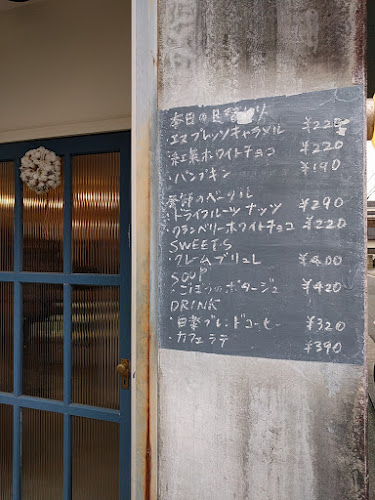 本日の日替わり
・エスプレッソキャラメル ¥225
・紅茶ホワイトチョコ ¥220
・パンプキン ¥190
季節のベーグル
・ドライフルーツナッツ ¥290
・クランベリーホワイトチョコ ¥220
SWEETS
・クレームブリュレ ¥400
SOUP
・ごぼうのポタージュ ¥420
DRINK
・自家ブレンドコーヒー ¥320
・カフェラテ ¥390